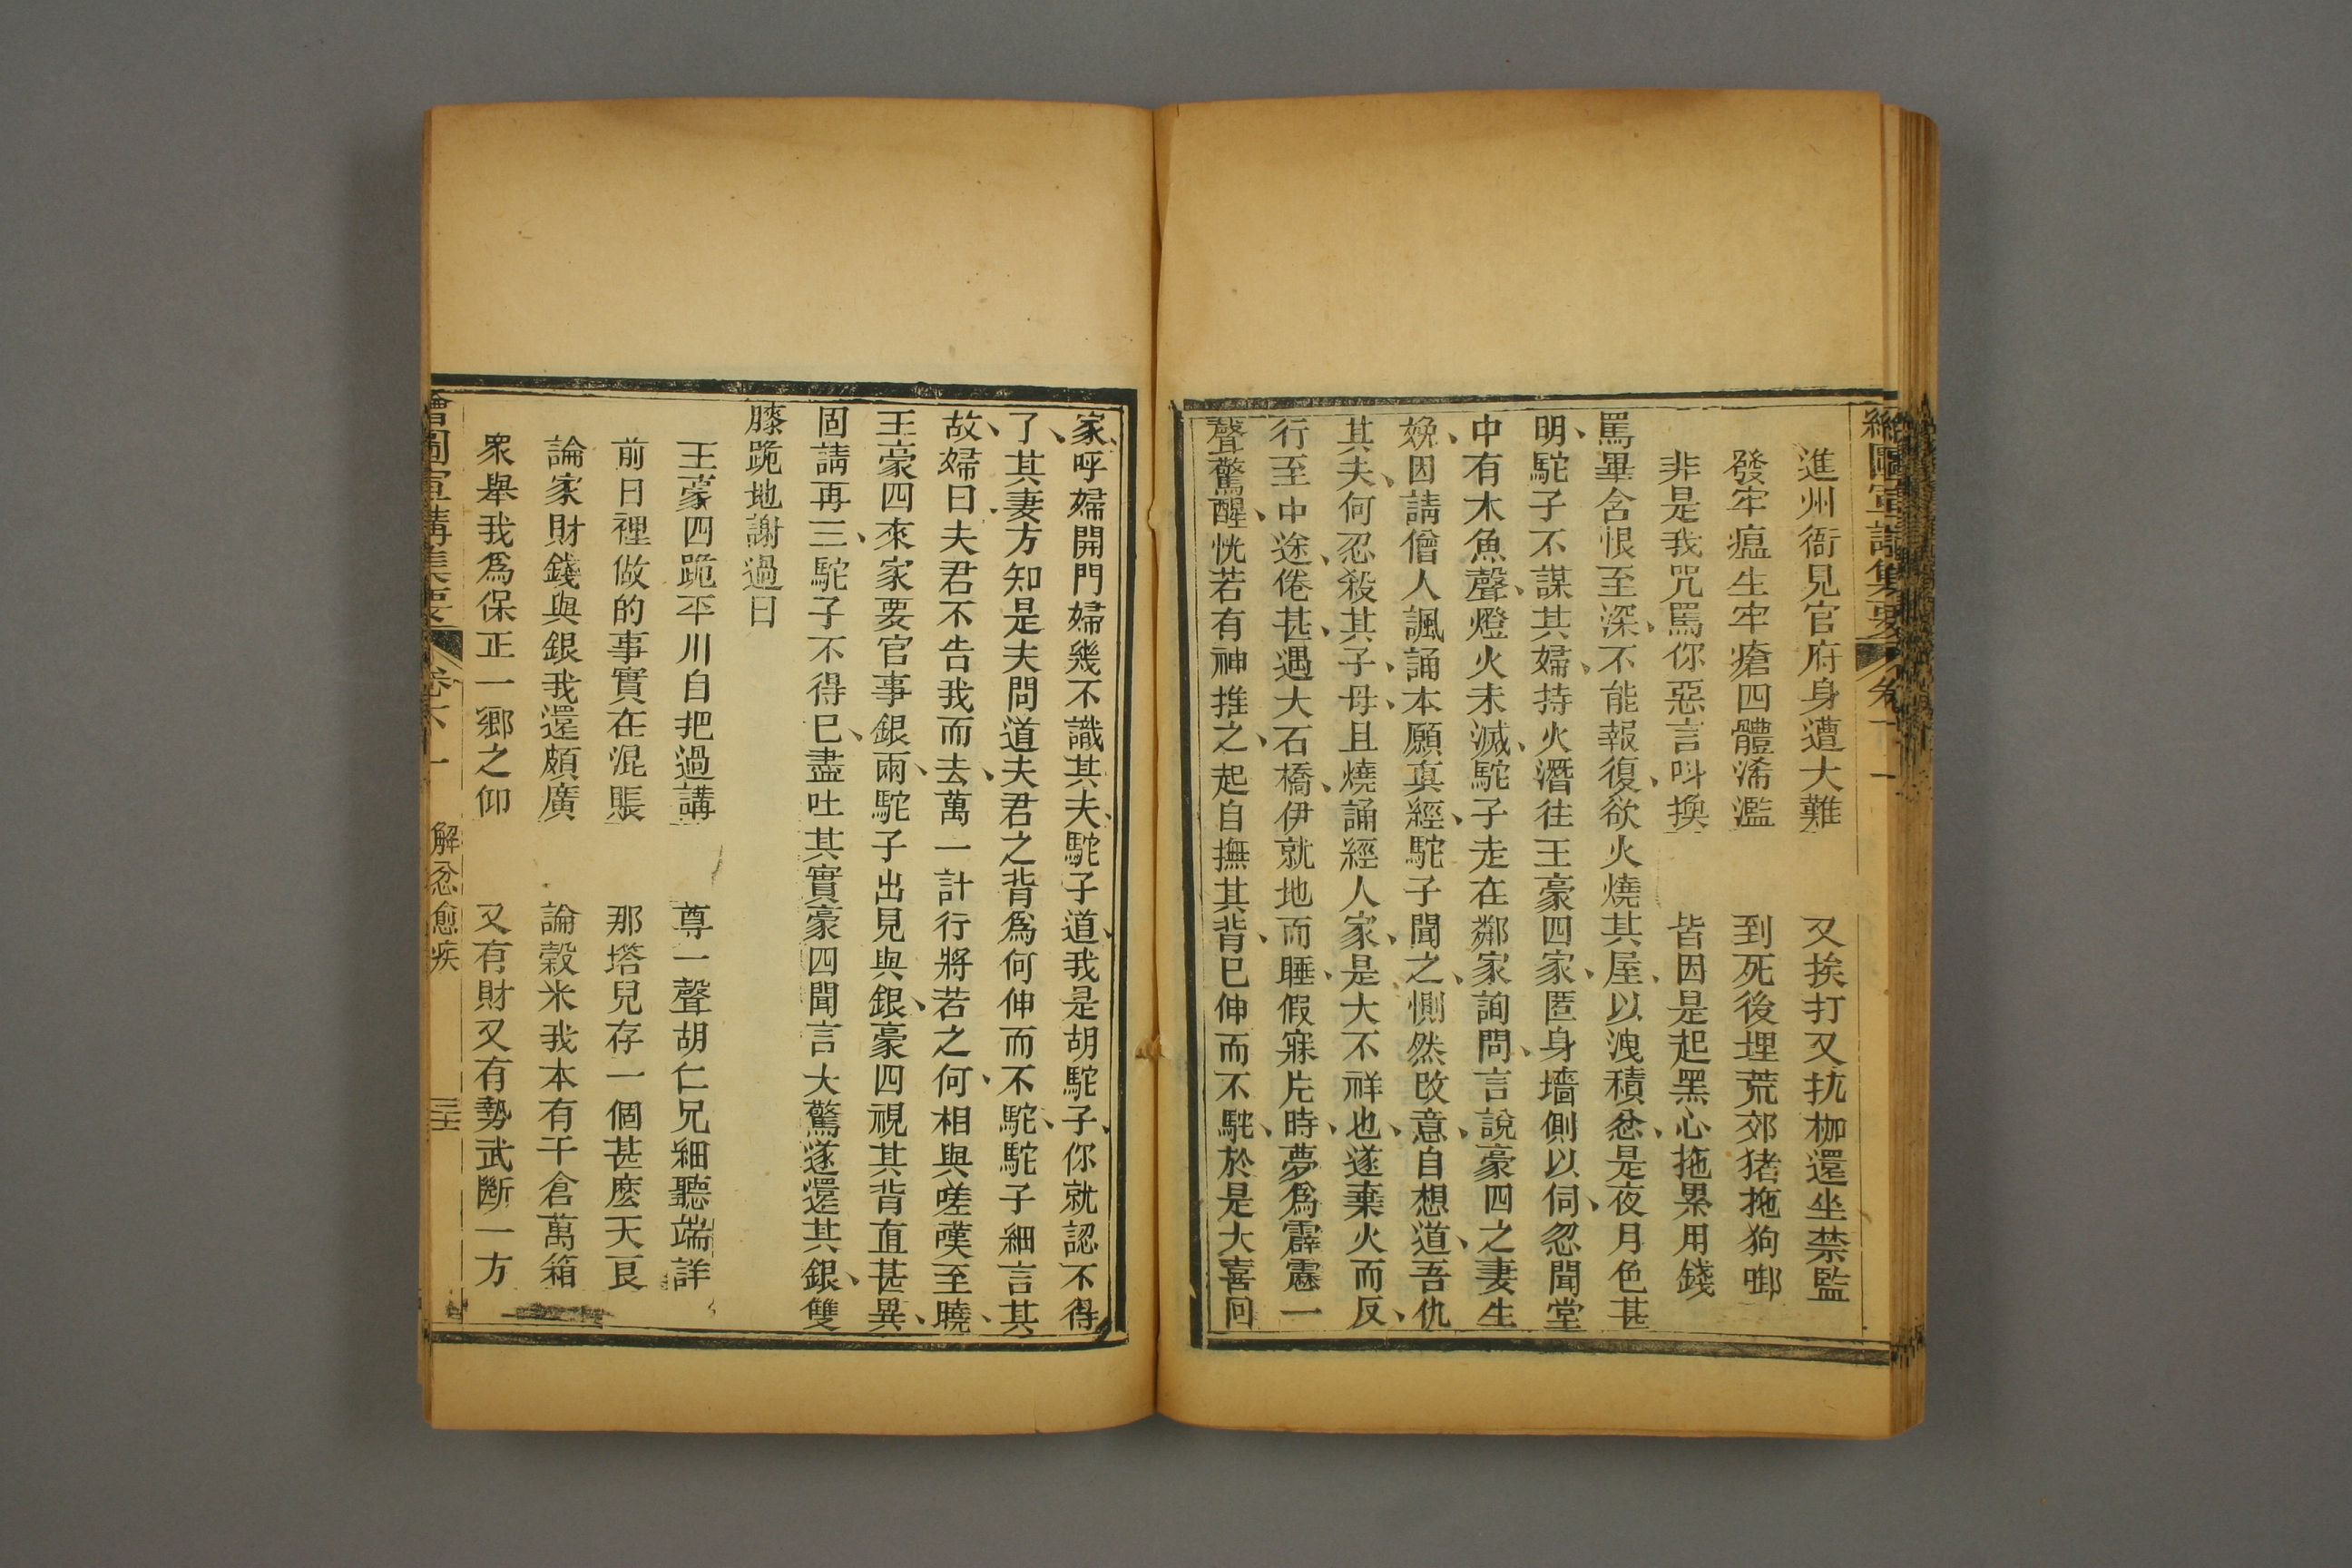 進州衙見官府身遭大難 又挨打又抗枷還坐禁監
發牢瘟生牢瘡四體浠濫 到死後埋荒郊猪拖狗啣
非是我咒罵你惡言叫換 皆因是起黑心拖累用錢
罵畢含恨至深、不能報復、欲火燒其屋、以洩積忿、是夜月色甚
明、駝子不謀其婦、持火潛往王豪四家、匿身墻側以伺、忽聞堂
中有木魚聲、燈火未滅、駝子走在鄰家詢問、言說豪四之妻生
娩、因請僧人諷誦本願真經、駝子聞之、惻然改意、自想道、吾仇
其夫、何忍殺其子、母、且燒誦經人家、是大不祥也、遂棄火而反、
行至中途、倦甚、遇大石橋、伊就地而睡、假寐片時、夢爲霹靂一
聲驚醒、恍若有神推之、起自撫其背、已伸而不駝、於是大喜回
家、呼婦開門婦幾不識其夫、駝子道、我是胡駝子、你就認不得
了、其妻方知是夫問道夫君之背爲何伸而不駝、駝子細言其
故、婦曰夫君不告我而去、萬一計行將若之何、相與嗟嘆至曉、
王豪四來家要官事銀兩、駝子出見與銀、豪四視其背直甚異、
固請再三、駝子不得已、盡吐其實豪四聞言大驚遂還其銀、雙
膝跪地謝過曰
王豪四跪平川自把過講 尊一聲胡仁兄細聽端詳
前日裡做的事實在混賬 那塔兒存一個甚麽天良
論家財錢與銀我還頗廣 論穀米我本有千倉萬箱
衆舉我爲保正一鄉之仰 又有財又有勢武斷一方
繪圖宣講集要 卷十一 解忿愈疾